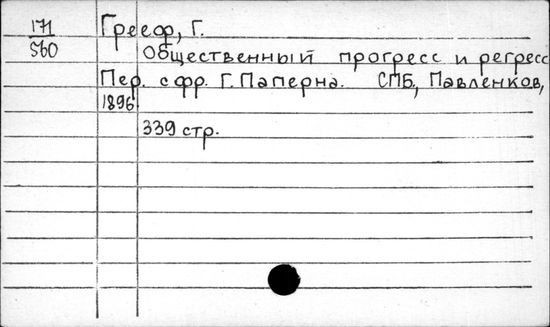 171 Грееф, Г.
560 Общественный прогресс и регресс
Пер. с фр. Г. Паперна. СПБ, Павленков,
1896
339 стр.